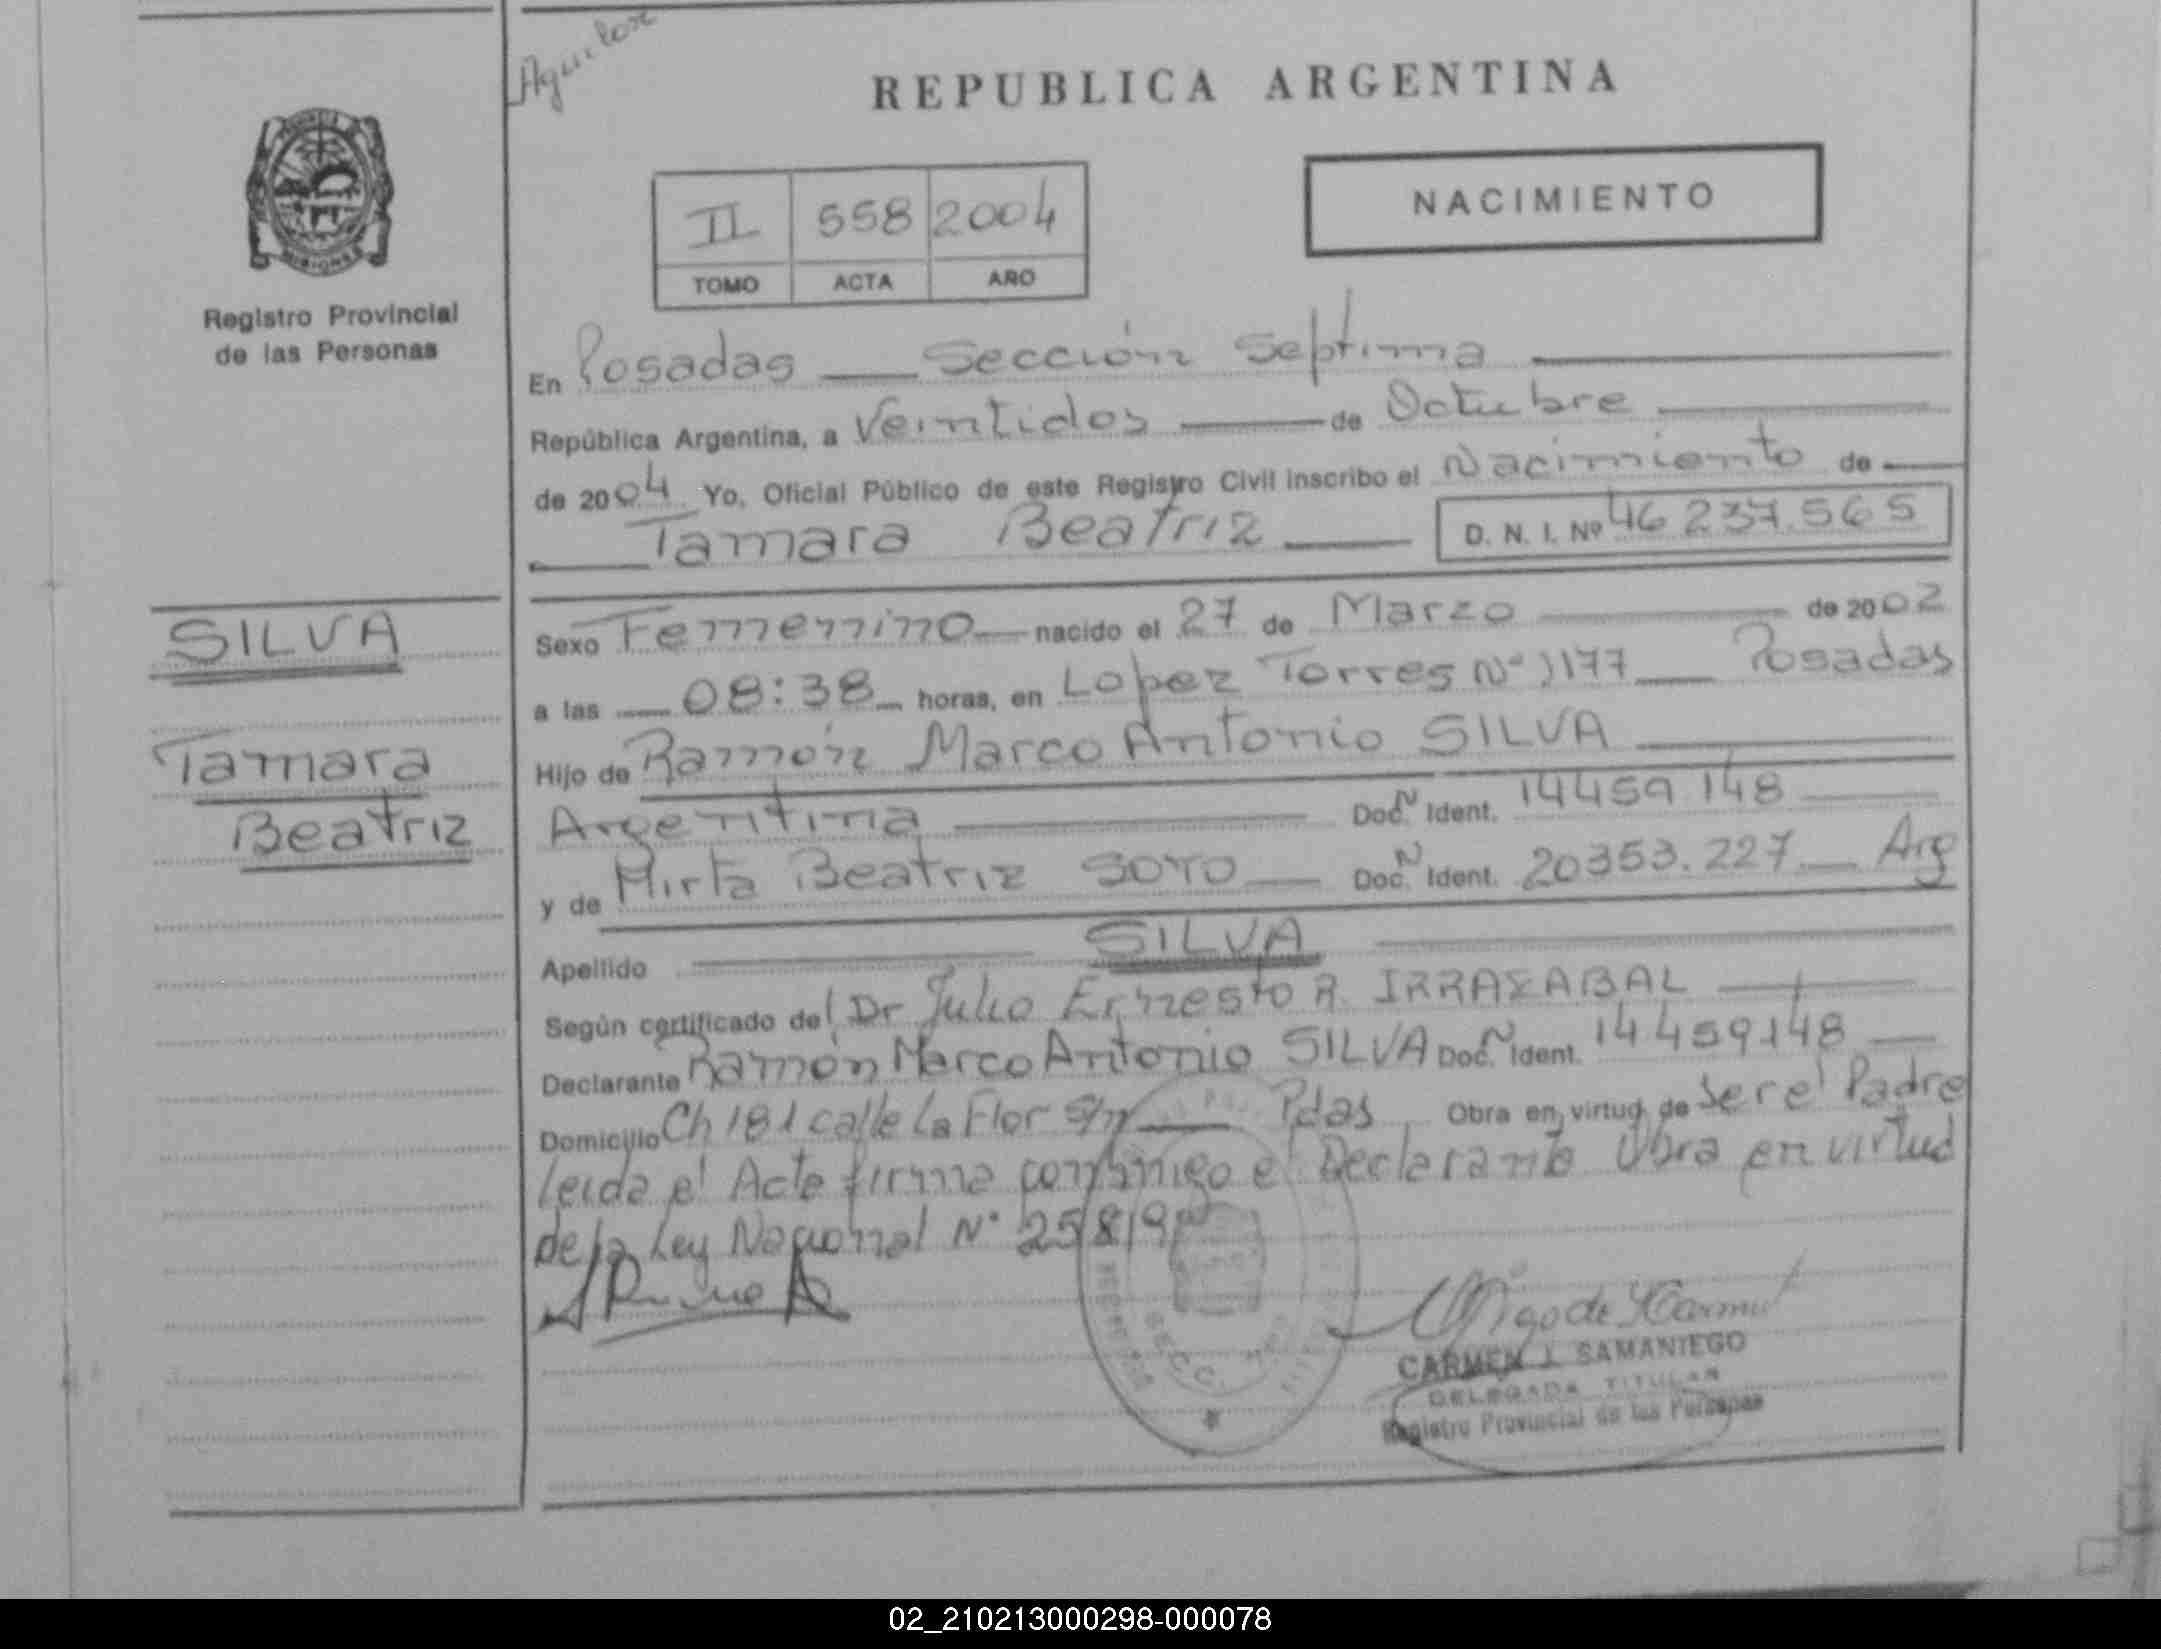 Aguilar
REPUBLICA ARGENTINA
NACIMIENTO
II 558 2004
TOMO ACTA AÑO
MISIONES
Registro Provincial
de las Personas
En Posadas Sección Septima
República Argentina, a Veintidos de Octubre
de 2004 Yo, Oficial Público de este Registro Civil inscribo el Nacimiento de
Tamara Beatriz D. N. I. Nº 46 237.565
SILVA
Tamara
Beatriz
Sexo Femenino nacido el 27 de Marzo de 2002
a las 08:38 horas, en Lopez Torres Nº 1177 Posadas
Hijo de Ramón Marco Antonio SILVA
Argentina Doc. N Ident. 14459.148
y de Mirta Beatriz SOTO Doc. N Ident. 20353.227 Arg
Apellido SILVA
Según certificado del Dr Julio Ernesto R. IRRAZABAL
Declarante Ramón Marco Antonio SILVA Doc. N Ident. 14459148
Domicilio Ch 181 calle La Flor S/n Pdas Obra en virtud de Ser el Padre
Leida el Acta firma conmigo el Declarante Obra en virtud
de la Ley Nacional Nº 25819
SECC.
CARMEN J. SAMANIEGO
DELEGADA TITULAR
Registro Provincial de las Personas
02_210213000298-000078